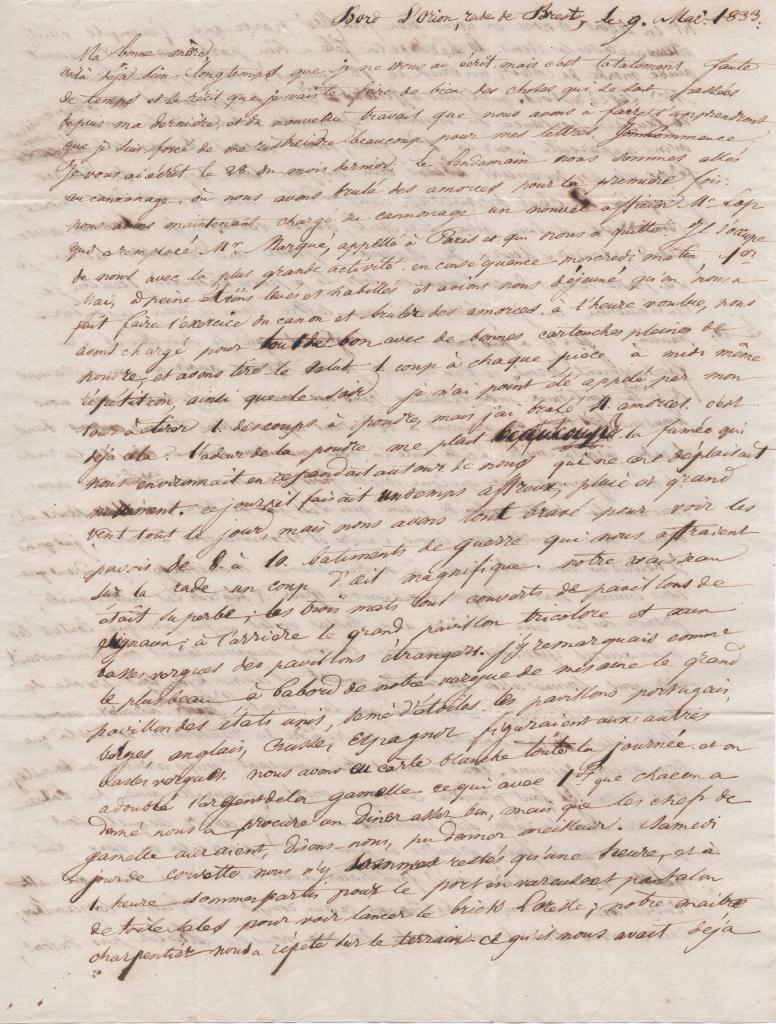 Bord L'Orion, rade de Brest, le 9. Mai. 1833.
Ma bonne mère,
voilà déjà bien longtemps que je ne vous ai écrit, mais c'est totalement faute
de temps et le récit que je vais te faire de bien des choses qui se sont passées
depuis ma dernière et du nouveau travail que nous avons à faire t'apprendront
que je suis forcé de me restreindre beaucoup pour mes lettres. Je commence
Je vous ai écrit le 28. du mois dernier. le lendemain nous sommes allés
au canonage, où nous avons brulé des amorces pour la première fois.
nous avons maintenant chargé du cannonage un nouvel officier Mr.
qui a remplacé Mr. Marqué, appellé à Paris et qui nous a quitté. Il s'occupe
de nous avec la plus grande activité. en conséquence mercredi matin, 1er
Mai, à peine étions levés et habillés et avions nous déjeuné qu'on nous a
fait faire l'exercice du canon et bruler des amorces. à l'heure voulue, nous
avons chargé pour tout de bon avec de bonnes cartouches pleines de
poudre, et avons tiré le salut 1 coup à chaque pièce, à midi même
répétition, ainsi que le soir. je n'ai point été appelé par mon
tour à tirer 1. des coups à poudre, mais j'ai brulé 4 amorces. c'est
déjà cela. l'odeur de la poudre me plait beaucoup et la fumée qui
nous environnait en se répandait autour de nous qui ne me déplaisait
nullement. ce jour il faisait un temps affreux; pluie et grand
vent tout le jour, mais nous avons tout bravé pour voir les
pavois de 8. à 10. batiments de guerre qui nous offraient
sur la rade un coup d'œil magnifique. notre vaisseau
était superbe; les trois mats tout couverts de pavillons de
signaux; à l'arrière le grand pavillon tricolore et aux
basses vergues des pavillons étrangers. j'y remarquais comme
le plus beau à babord de notre vergue de misaine le grand
pavillon des états unis, semé d'étoiles. les pavillons portugais,
belges, anglais, Russe, Espagnol figuraient aux autres
basses vergues. nous avons eu carte blanche toute la journée. et on
a doublé l'argent de la gamelle ce qui avec 1 que chacun a
donné nous a procuré un diner assez bon, mais que les chefs de
gamelle auraient, disons-nous, pu donner meilleur. Samedi
jour de corvette nous n'y sommes restés qu'une heure, et à
1. heure sommes partis pour le port en vareuse et pantalon
de toile sales pour voir lancer le brick; notre maitre
charpentier nous a répété sur le terrain ce qu'il nous avait déjà